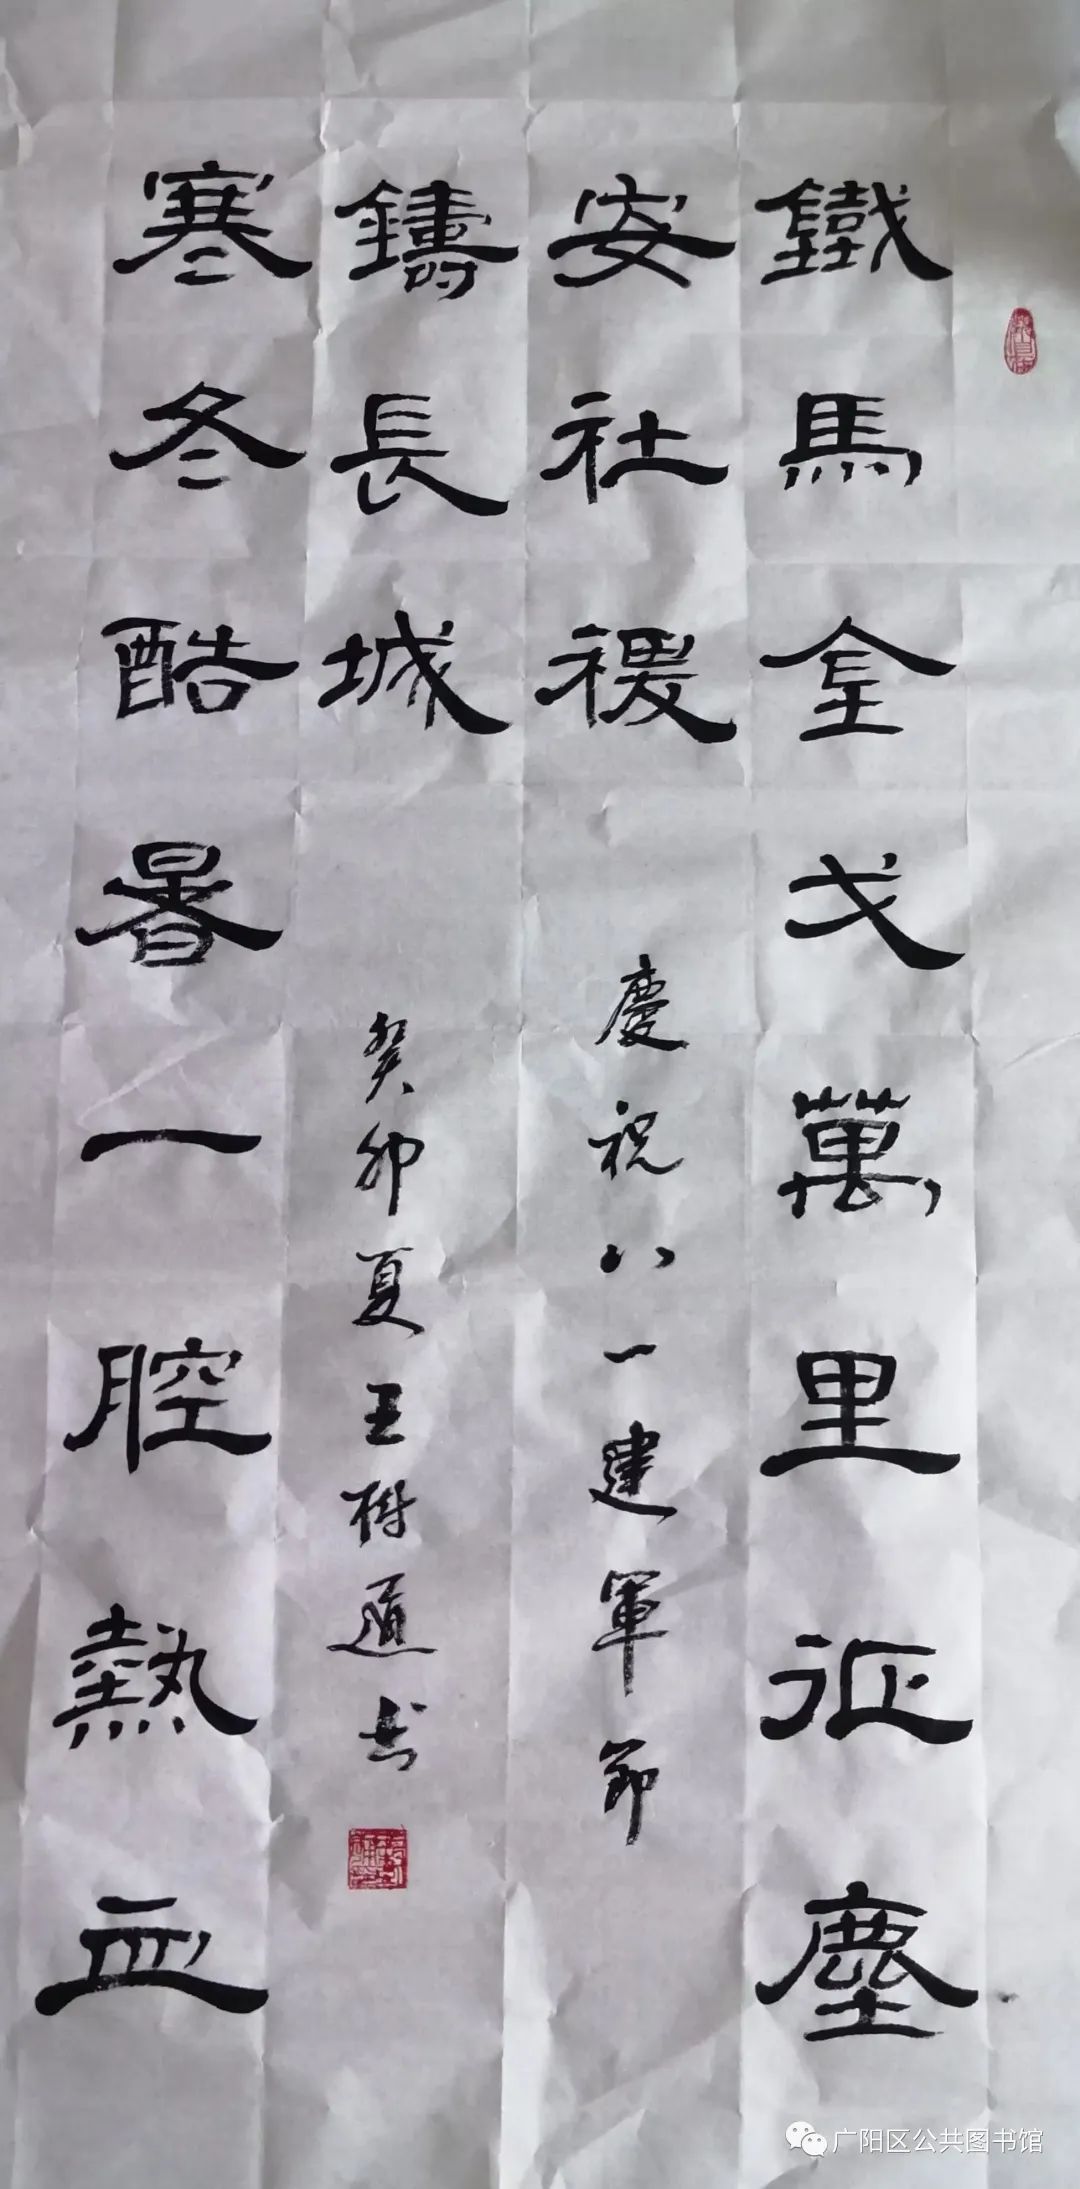 鐵馬金戈萬里征塵
安社稷
寒冬酷暑一腔熱血
鑄長城
慶祝八一建軍節
癸卯夏王道书
广阳区公共图书馆